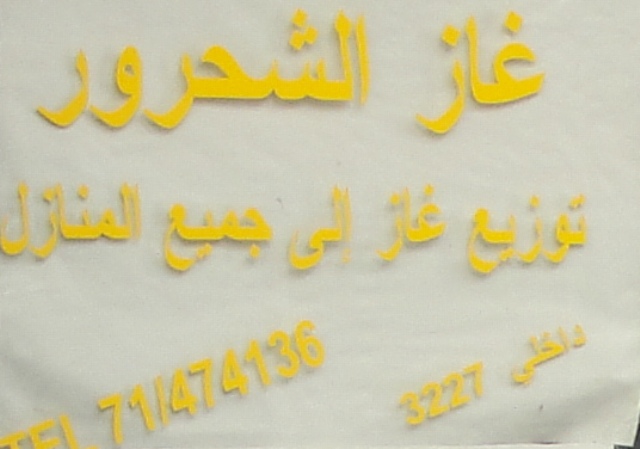 غاز الشحرور
توزيع غاز إلى جميع المنازل
داخلي 3227
TEL 71/474136